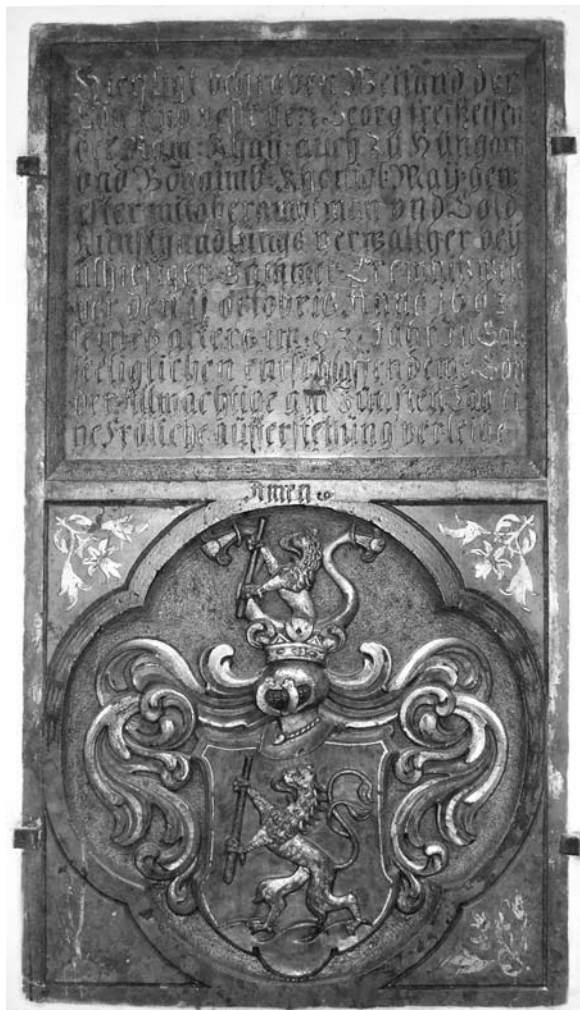 Hier ligt begraben Weiland der
Edl und vest herr Georg freiseisen
der Röm: Khay: auch zu Hungern
und Böhaimb Khönigl: May: gew
ester mitoberambtman und Gold
kunsthandlungs verwalther bey
alhiesiger Cammer Cremnitz
der den 11 octobris Anno 1603
seines alters im 63. Jahr in Got
seeliglichen entschlaffen dem Got
der Allmächtige am Jüngsten Tag ei
ne Fröliche aufferstehung verleihe
Amen